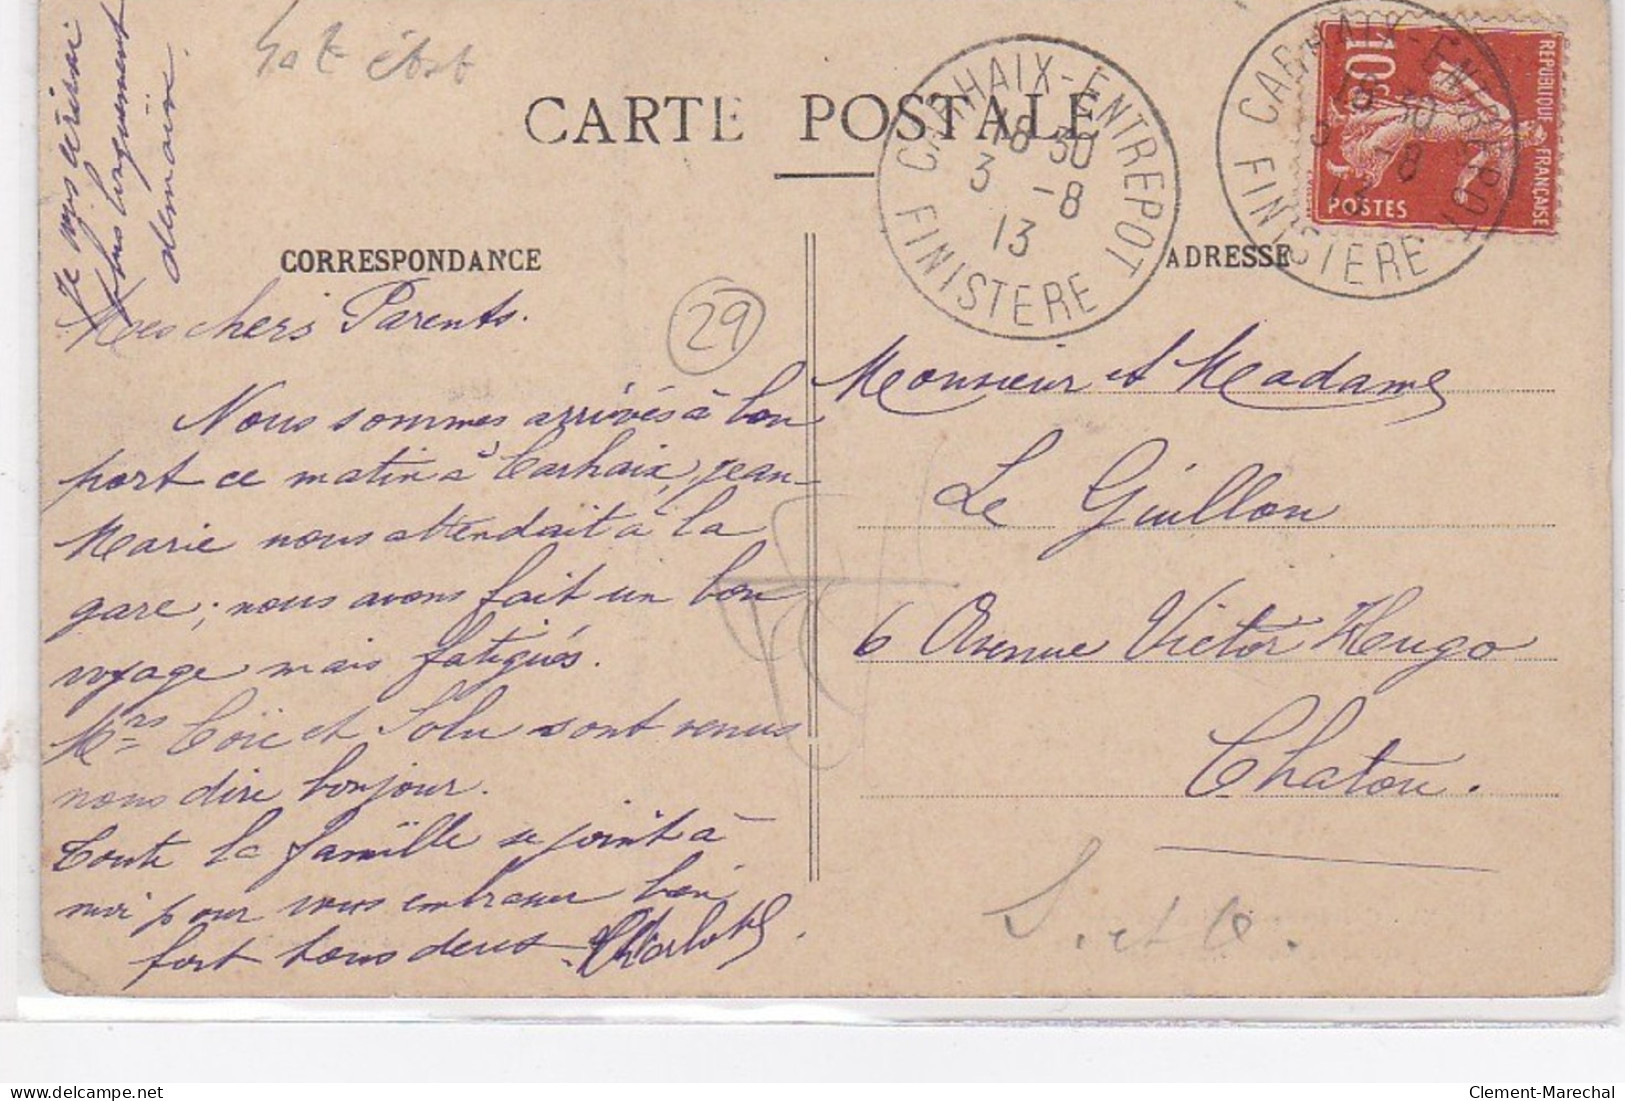 Je vous écrirai
plus longuement
demain.
CARTE POSTALE
CARHAIX-ENTREPOT
18 30
3 -8
13
FINISTERE
CARHAIX-ENTREPOT
18 30
3 -8
13
FINISTERE
10c
REPUBLIQUE FRANÇAISE
POSTES
CORRESPONDANCE
Mes chers Parents.
29
Nous sommes arrivés à bon
port ce matin à Carhaix, Jean-
Marie nous attendait à la
gare; nous avons fait un bon
voyage mais fatigués.
Mrs Coïc et Solu sont venus
nous dire bonjour.
Toute la famille se joint à
moi pour vous embrasser bien
fort tous deux. Charlotte.
ADRESSE
Monsieur et Madame
Le Guillou
6 Avenue Victor Hugo
Chatou.
S. et O.
Clement-Marechal